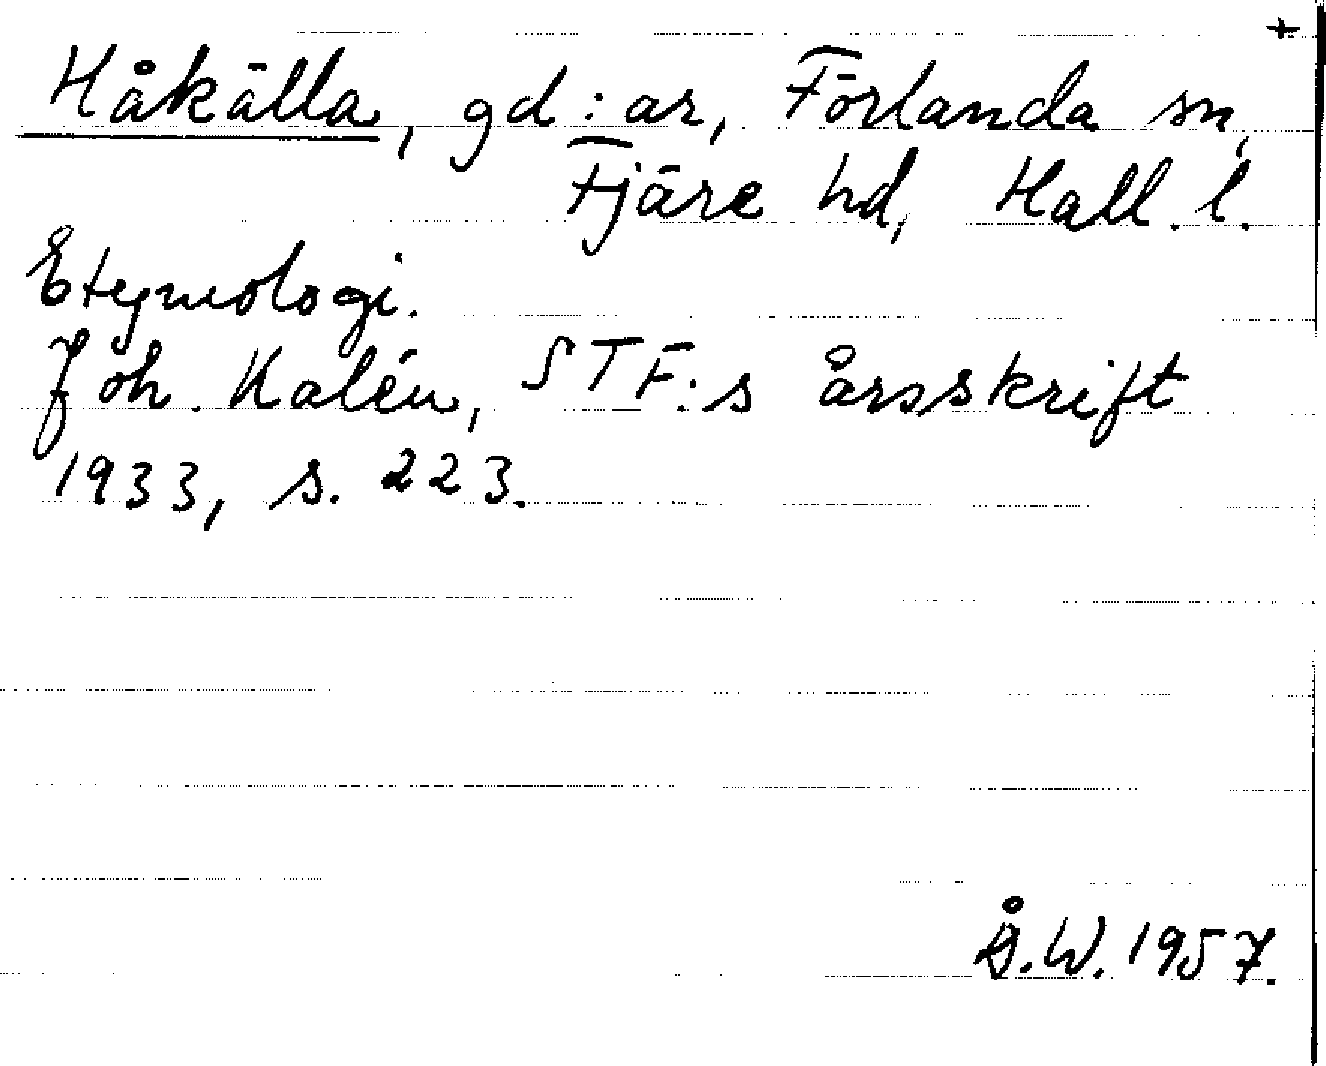 +
Håkälla, gd:ar, Förlanda sn,
Fjäre hd, Hall. l.
Etymologi.
Joh. Kalén, STF:s årsskrift
1933, s. 223.
Å.W. 1957.